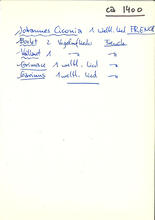 ca 1400
Johannes Ciconia 1 weltl. Lied FRENCH
Borlet 2 Vogelruflieder French
Vaillant 1 —"—
Grimace 1 weltl. Lied
1 weltl. Lied